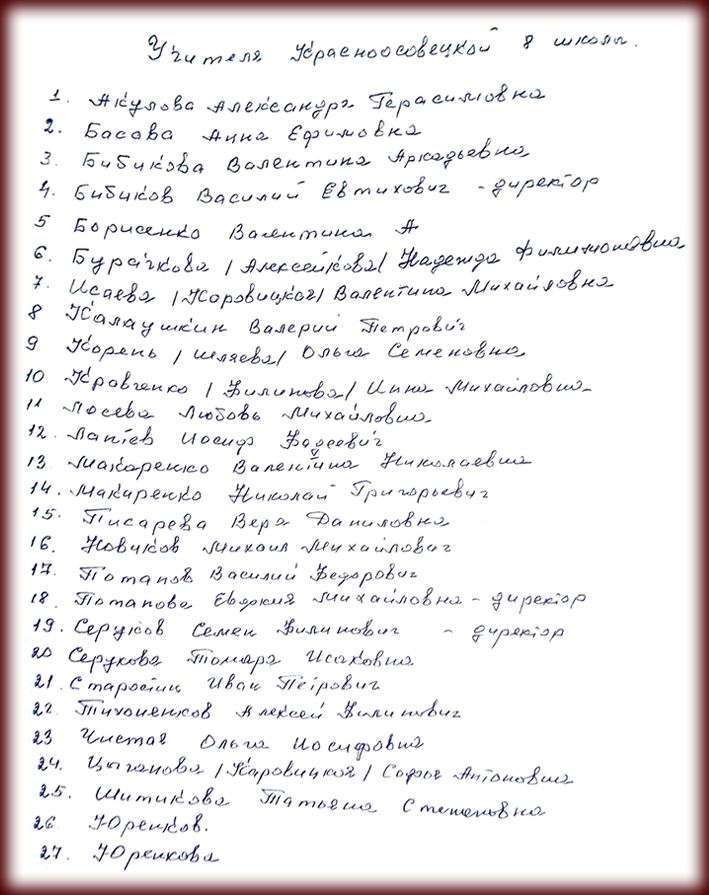 Учителя Красноосовецкой 8 школы.
1. Акулова Александра Герасимовна
2. Басова Анна Ефимовна
3. Бибикова Валентина Аркадьевна
4. Бибиков Василий Евтихович - директор
5 Борисенко Валентина А
6. Бурачкова /Алексейкова/ Надежда Филимоновна
7. Исаева /Каровицкая/ Валентина Михайловна
8 Калаушкин Валерий Петрович
9 Корень /Шляева/ Ольга Семеновна
10 Кравченко /Филипова/ Инна Михайловна
11 Лосева Любовь Михайловна
12. Лаптев Иосиф Фадеевич
13. Макаренко Валентина Николаевна
14. Макаренко Николай Григорьевич
15. Писарева Вера Даниловна
16. Новиков Михаил Михайлович
17. Потапов Василий Федорович
18. Потапова Евдокия Михайловна - директор
19. Серуков Семен Филипович - директор
20 Серукова Томара Исаковна
21. Старостин Иван Петрович
22. Тихоненков Алексей Филипович
23 Чистая Ольга Иосифовна
24. Цыганова /Каровицкая/ Софья Антоновна
25. Шитикова Татьяна Степеновна
26 Юренков.
27. Юренкова